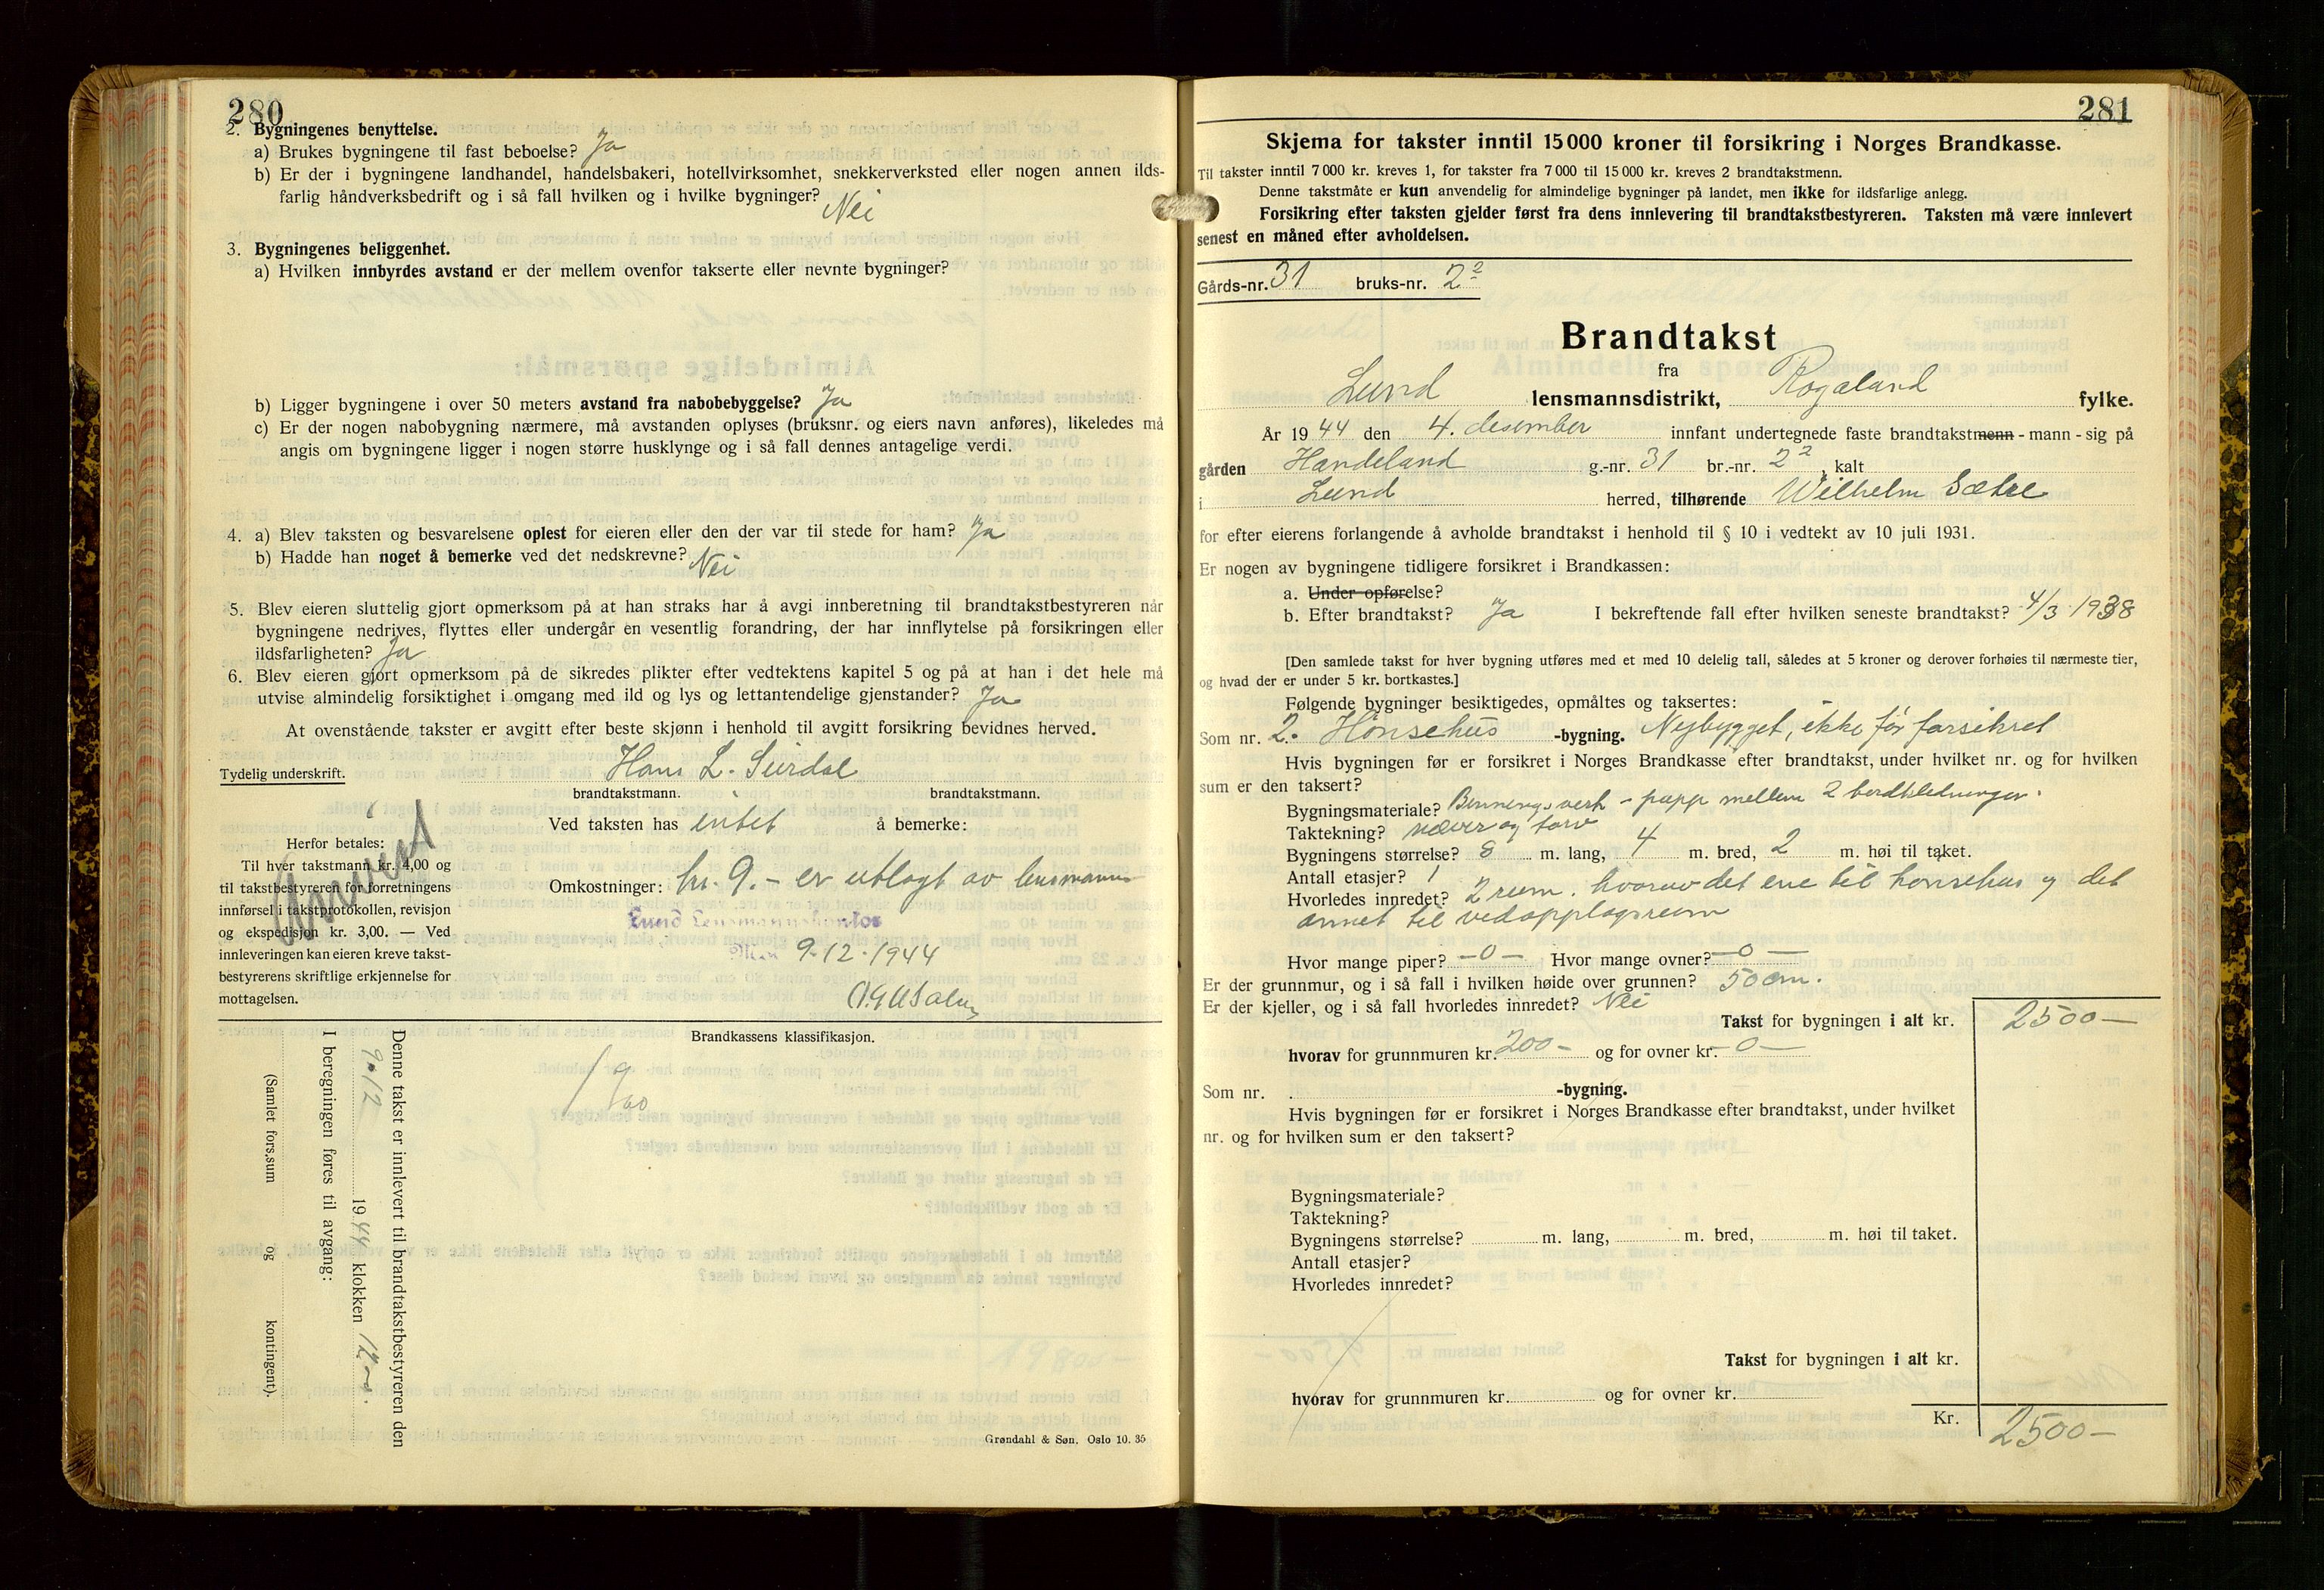 280
2. Bygningenes benyttelse.
a) Brukes bygningene til fast beboelse? Ja
b) Er der i bygningene landhandel, handelsbakeri, hotellvirksomhet, snekkerverksted eller nogen annen ilds-
farlig håndverksbedrift og i så fall hvilken og i hvilke bygninger? Nei
3. Bygningenes beliggenhet.
a) Hvilken innbyrdes avstand er der mellem ovenfor takserte eller nevnte bygninger?
b) Ligger bygningene i over 50 meters avstand fra nabobebyggelse? Ja
c) Er der nogen nabobygning nærmere, må avstanden oplyses (bruksnr. og eiers navn anføres), likeledes må
angis om bygningene ligger i nogen større husklynge og i så fall dennes antagelige verdi.
4. a) Blev taksten og besvarelsene oplest for eieren eller den der var til stede for ham? Ja
b) Hadde han noget å bemerke ved det nedskrevne? Nei
5. Blev eieren sluttelig gjort opmerksom på at han straks har å avgi innberetning til brandtakstbestyreren når
bygningene nedrives, flyttes eller undergår en vesentlig forandring, der har innflytelse på forsikringen eller
ildsfarligheten? Ja
6. Blev eieren gjort opmerksom på de sikredes plikter efter vedtektens kapitel 5 og på at han i det hele må
utvise almindelig forsiktighet i omgang med ild og lys og lettantendelige gjenstander? Ja
At ovenstående takster er avgitt efter beste skjønn i henhold til avgitt forsikring bevidnes herved.
Tydelig underskrift. Hans L. Surdal
brandtakstmann. brandtakstmann.
Ved taksten has intet å bemerke:
Herfor betales:
Til hver takstmann kr. 4,00 og
til takstbestyreren for forretningens
innførsel i takstprotokollen, revisjon
og ekspedisjon kr. 3,00. — Ved
innleveringen kan eieren kreve takst-
bestyrerens skriftlige erkjennelse for
mottagelsen.
Omkostninger: kr. 9.- er utlagt av lensmann
Lund Lensmannskontor
9-12-1944
Brandkassens klassifikasjon.
Denne takst er innlevert til brandtakstbestyreren den
9-12 1944 klokken 12
I beregningen føres til avgang:
(Samlet fors.sum og kontingent).
Grøndahl & Søn, Oslo 10. 35
281
Skjema for takster inntil 15 000 kroner til forsikring i Norges Brandkasse.
Til takster inntil 7 000 kr. kreves 1, for takster fra 7 000 til 15 000 kr. kreves 2 brandtakstmenn.
Denne takstmåte er kun anvendelig for almindelige bygninger på landet, men ikke for ildsfarlige anlegg.
Forsikring efter taksten gjelder først fra dens innlevering til brandtakstbestyreren. Taksten må være innlevert
senest en måned efter avholdelsen.
Gårds-nr. 31 bruks-nr. 2²
Brandtakst
fra
Lund lensmannsdistrikt, Rogaland fylke.
År 1944 den 4. desember innfant undertegnede faste brandtakstmenn - mann - sig på
gården Handeland g.-nr. 31 br.-nr. 2², kalt
i Lund herred, tilhørende Wilhelm Sætre
for efter eierens forlangende å avholde brandtakst i henhold til § 10 i vedtekt av 10 juli 1931.
Er nogen av bygningene tidligere forsikret i Brandkassen:
a. Under opførelse?
b. Efter brandtakst? Ja I bekreftende fall efter hvilken seneste brandtakst? 4/3 1938
[Den samlede takst for hver bygning utføres med et med 10 delelig tall, således at 5 kroner og derover forhøies til nærmeste tier,
og hvad der er under 5 kr. bortkastes.]
Følgende bygninger besiktigedes, opmåltes og taksertes:
Som nr. 2. Hönsehus -bygning. Nybygget, ikke før forsikret
Hvis bygningen før er forsikret i Norges Brandkasse efter brandtakst, under hvilket nr. og for hvilken
sum er den taksert?
Bygningsmateriale? Binningsverk - papp mellem 2 bordkledninger.
Taktekning? næver og torv
Bygningens størrelse? 8 m. lang, 4 m. bred, 2 m. høi til taket.
Antall etasjer? 1
Hvorledes innredet? 2 rum. hvorav det ene til hønsehus og det
annet til vedopplagsrum
Hvor mange piper? -0- Hvor mange ovner? -0-
Er der grunnmur, og i så fall i hvilken høide over grunnen? 50 cm.
Er der kjeller, og i så fall hvorledes innredet? Nei
Takst for bygningen i alt kr. 2500-
hvorav for grunnmuren kr. 200- og for ovner kr. -0-
Som nr. -bygning.
Hvis bygningen før er forsikret i Norges Brandkasse efter brandtakst, under hvilket
nr. og for hvilken sum er den taksert?
Bygningsmateriale?
Taktekning?
Bygningens størrelse? m. lang, m. bred, m. høi til taket.
Antall etasjer?
Hvorledes innredet?
Takst for bygningen i alt kr.
hvorav for grunnmuren kr. og for ovner kr.
Kr. 2500-